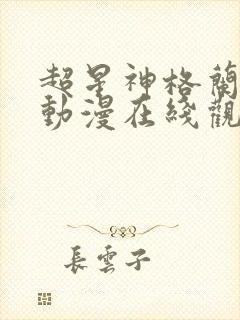 超星神格蘭
動漫在綫觀
長雲子